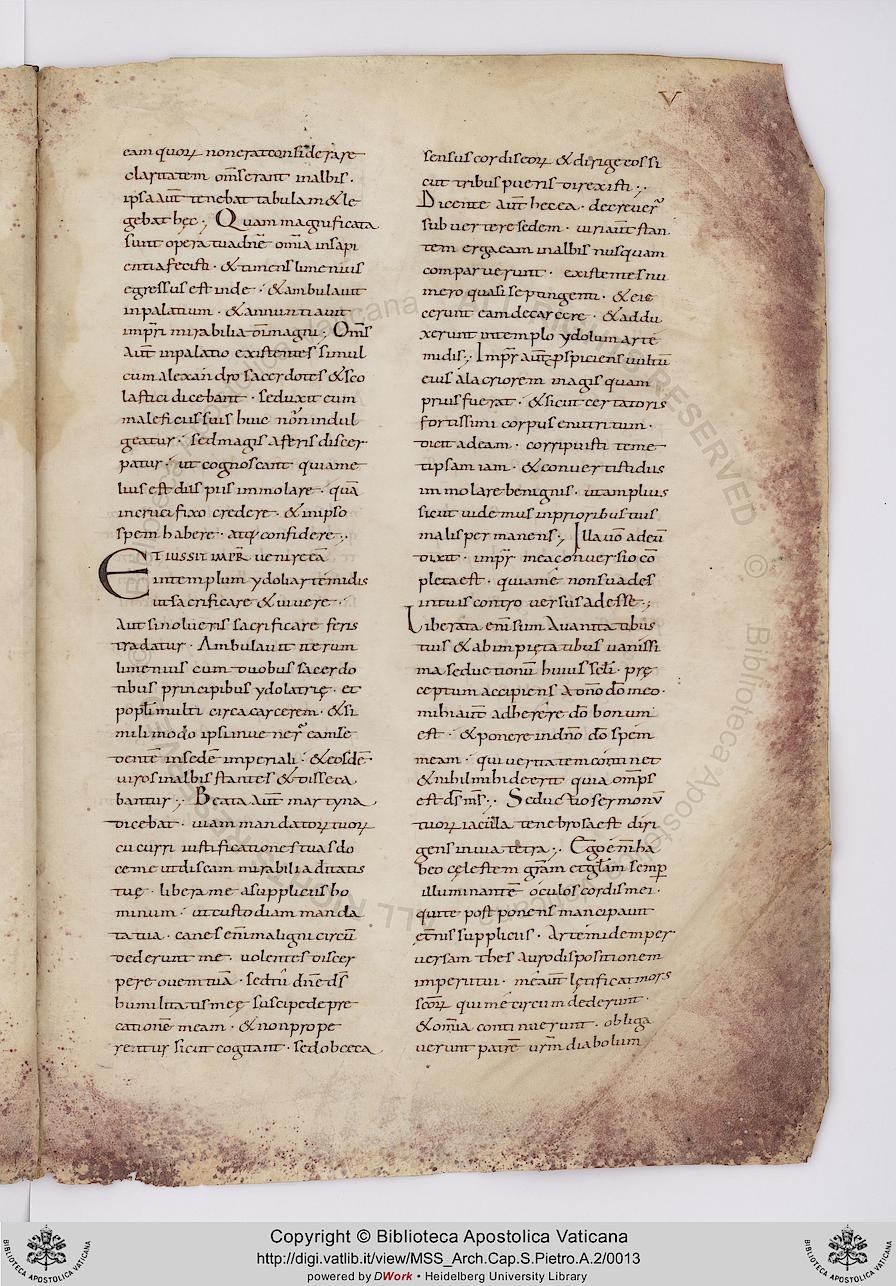 V
eam quorꝝ non erat considerare
claritatem. om̅s erant in albis.
ipsa aut̅ tenebat tabulam & le
gebat hęc; Quam magnificata
sunt opera tua dn̅e om̅ia in sapi
entia fecisti. & timens limenius
egressus est inde. & ambulavit
in palatium. & annuntiavit
imp̅ri mirabilia d̅i magni; Om̅s
aut̅ in palatio existentes simul
cum alexandro sacerdotes & sco
lastici dicebant. seduxit eum
maleficiis suis huic non̅ indul
geatur. sed magis a feris discer
patur. ut cognoscant quia me
lius est diis piis immolare. quā
in crucifixo credere. & in ipso
spem habere. atq; confidere;
ET IUSSIT IMP̅R venire eā
in templum ydoli artemidis
ut sacrificare & vivere.
Aut si nolueris sacrificare feris
tradatur. Ambulavit iterum
limenius cum duobus sacerdo
tibus principibus ydolatrię. et
popl̅i multi circa carcerem. & si
mili modo ipsi invener̅ eam se
dente in sede imperiali. & eosdē
viros in albis stantes & disseca
bantur; Beata aut̅ martyna
dicebat. viam mandatorꝝ tuorꝝ
cucurri iustificationes tuas do
ce me ut discam mirabilia ditatis
tuę. libera me a suppliciis ho
minum. ut custodiam manda
ta tua. canes eni̅ maligni circū
dederunt me. volentes discer
pere ovem tuā. sed tū dn̅e d̅s
humilitatis meę suscipe depre
catione meam. & non prope
rentur sicut cogitant. sed obceca
sensus cordis eorꝝ & dirige eos si
cut tribus pueris direxisti;
Dicente aut̅ hec ea. decrever̅
subvertere sedem. viri aut̅ stan
tem erga eam in albis nusquam
comparuerunt. existentes nu
mero quasi septingenti. & eie
cerunt eam de carcere. & addu
xerunt in templo ydolum arte
midis; Imp̅r aut̅ p̱spiciens vultū
eius alacriorem magis quam
prius fuerat. & sicut certatoris
fortissimi corpus enitritum.
dicit ad eam. corripuisti teme
tipsam iam. & convertisti diis
immolare benignis. ut amplius
sicut videmus in prioribus tuis
malis permanens; Illa vō ad eū
dixit. imp̅r mea conversio cō
pleta est. quia me non suades
in tuis contro versus adesse;
Liberata eni̅ sum a vanitatibus
tuis & ab impietatibus vanissi
ma seductionū huius sc̅li. prę
ceptum accipiens a dn̅o d̅o meo.
mihi aut̅ adherere d̅o bonum
est. & ponere in dn̅o d̅o spem
meam. qui veritatem continet
& nihil mihi deerit quia om̅ps
est d̅s m̅s; Seductio sermonū
tuorꝝ iacula tenebrosa est diri
gens in via tetra; Ego eni̅ ha
beo cęlestem gr̅am et gl̅am semꝑ
illuminante oculos cordis mei.
qui te post ponens mancipavit
et̅nis suppliciis. Artemidem per
versam thesauro dispositionem
imperitui. me aut̅ lętificat mors
sc̅orꝝ qui me circum dederunt.
& om̅ia continuerunt. obliga
verunt patrē vr̅m diabolum
Copyright © Biblioteca Apostolica Vaticana
http://digi.vatlib.it/view/MSS_Arch.Cap.S.Pietro.A.2/0013
powered by DWork • Heidelberg University Library